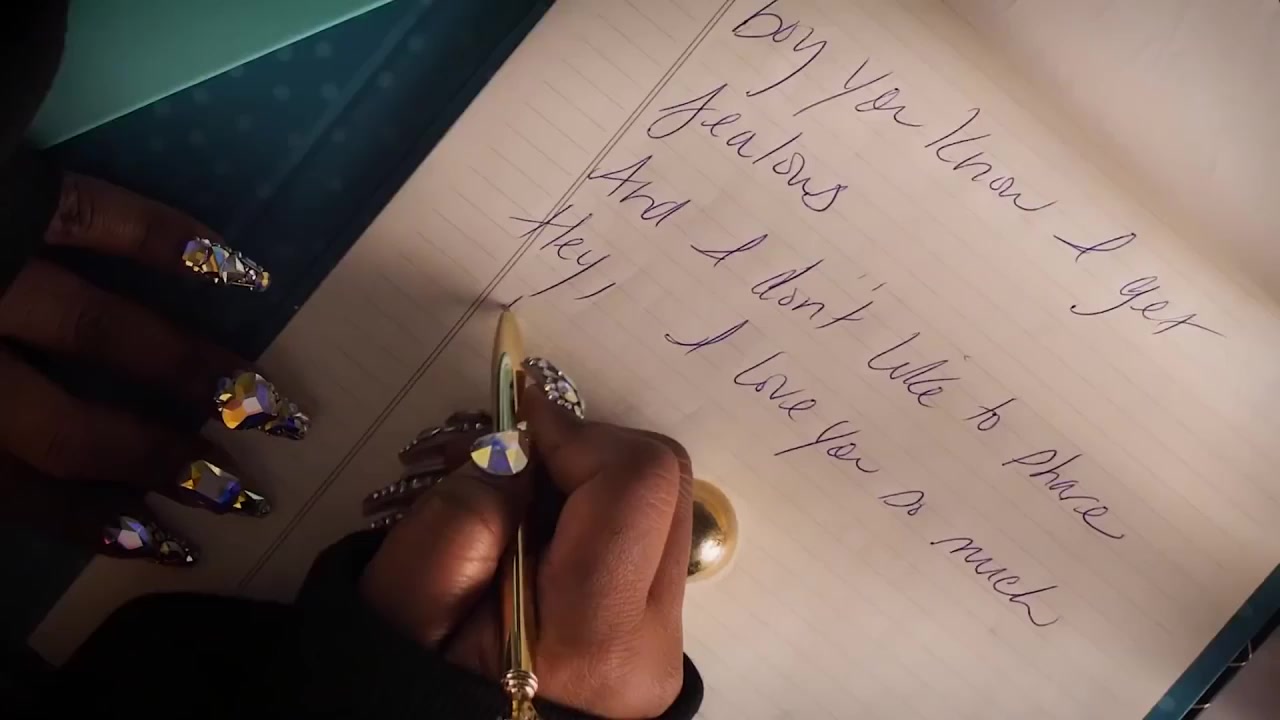 boy you know I get
Jealous
And I don't like to share
Hey, I love you so much